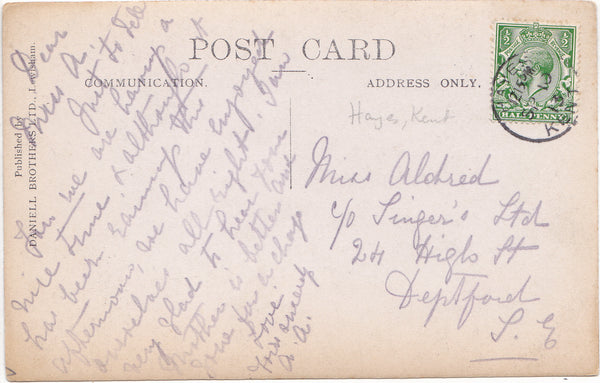 POST CARD
COMMUNICATION.
ADDRESS ONLY.
Published by
DANIELL BROTHERS LTD., Lewisham.
HALFPENNY
HAYES
KENT
Hayes, Kent
Dear
Miss A.
Just to tell
you we are having a
nice time & although it
has been raining this
afternoon, we have enjoyed
ourselves all right. I am
very glad to hear your
Mother is better and
gone for a change
Love.
Yours sincerely
A. A.
Miss Aldred
c/o Singer's Ltd
24 High St
Deptford
S. E